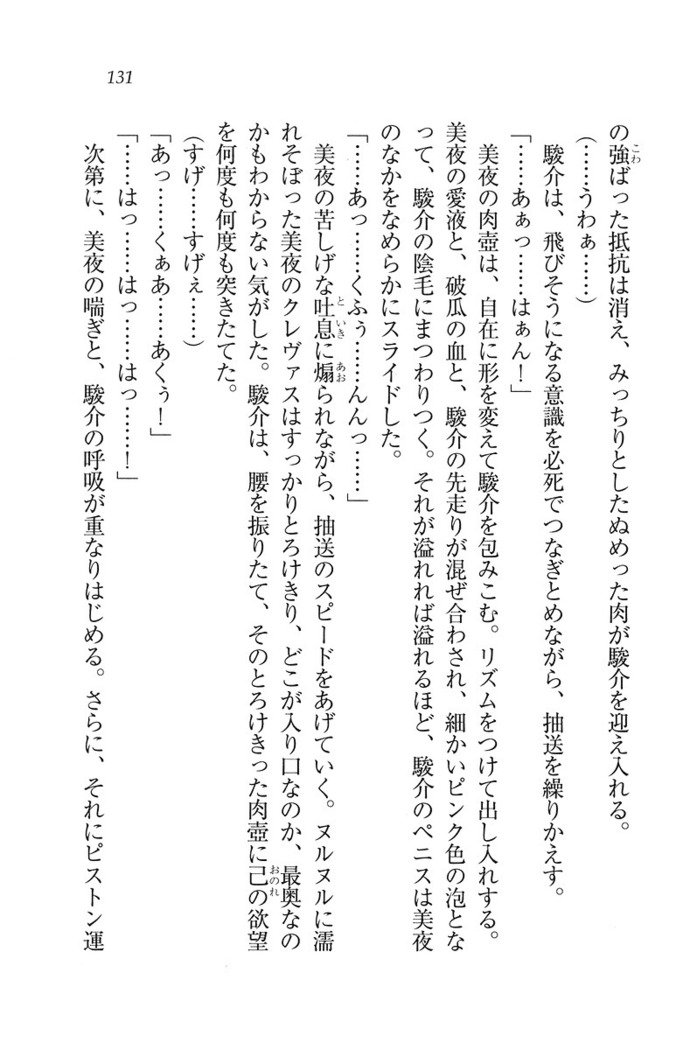 131
の強ばった抵抗は消え、みっちりとしたぬめった肉が駿介を迎え入れる。
(……うわぁ……)
駿介は、飛びそうになる意識を必死でつなぎとめながら、抽送を繰りかえす。
「……あぁっ……はぁん！」
美夜の肉壺は、自在に形を変えて駿介を包みこむ。リズムをつけて出し入れする。
美夜の愛液と、破瓜の血と、駿介の先走りが混ぜ合わされ、細かいピンク色の泡とな
って、駿介の陰毛にまつわりつく。それが溢れれば溢れるほど、駿介のペニスは美夜
のなかをなめらかにスライドした。
「……あっ……くふぅ……んんっ……」
美夜の苦しげな吐息に煽られながら、抽送のスピードをあげていく。ヌルヌルに濡
れそぼった美夜のクレヴァスはすっかりとろけきり、どこが入り口なのか、最奥なの
かもわからない気がした。駿介は、腰を振りたて、そのとろけきった肉壺に己の欲望
を何度も何度も突きたてた。
(すげ……すげぇ……)
「あっ……くぁあ……あくぅ！」
「……はっ……はっ……はっ……！」
次第に、美夜の喘ぎと、駿介の呼吸が重なりはじめる。さらに、それにピストン運